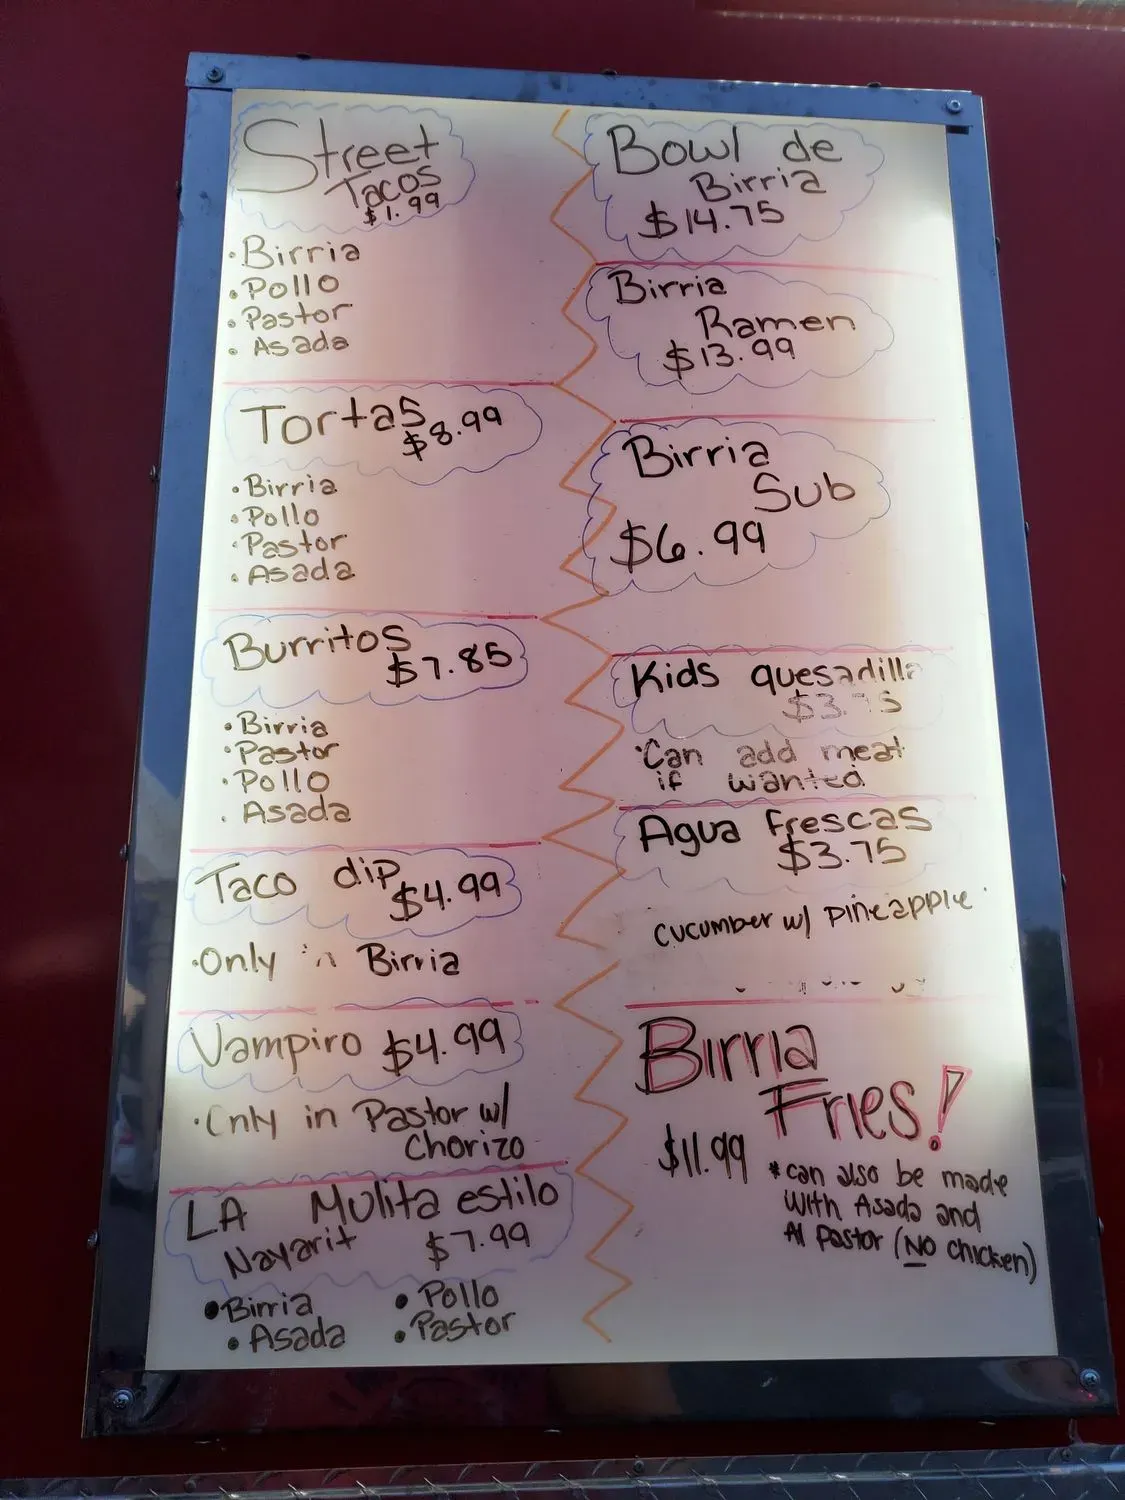 Street
Tacos
$1.99
• Birria
• Pollo
• Pastor
• Asada
Tortas
$8.99
• Birria
• Pollo
• Pastor
• Asada
Burritos
$7.85
• Birria
• Pastor
• Pollo
• Asada
Taco dip
$4.99
• Only in Birria
Vampiro $4.99
• Only in Pastor w/
Chorizo
LA Mulita estilo
Nayarit $7.99
• Birria • Pollo
• Asada • Pastor
Bowl de
Birria
$14.75
Birria
Ramen
$13.99
Birria
Sub
$6.99
Kids quesadilla
• Can add meat
if wanted
Agua frescas
$3.75
cucumber w/ pineapple
Birria
Fries!
$11.99
* can also be made
with Asada and
Al pastor (NO chicken)